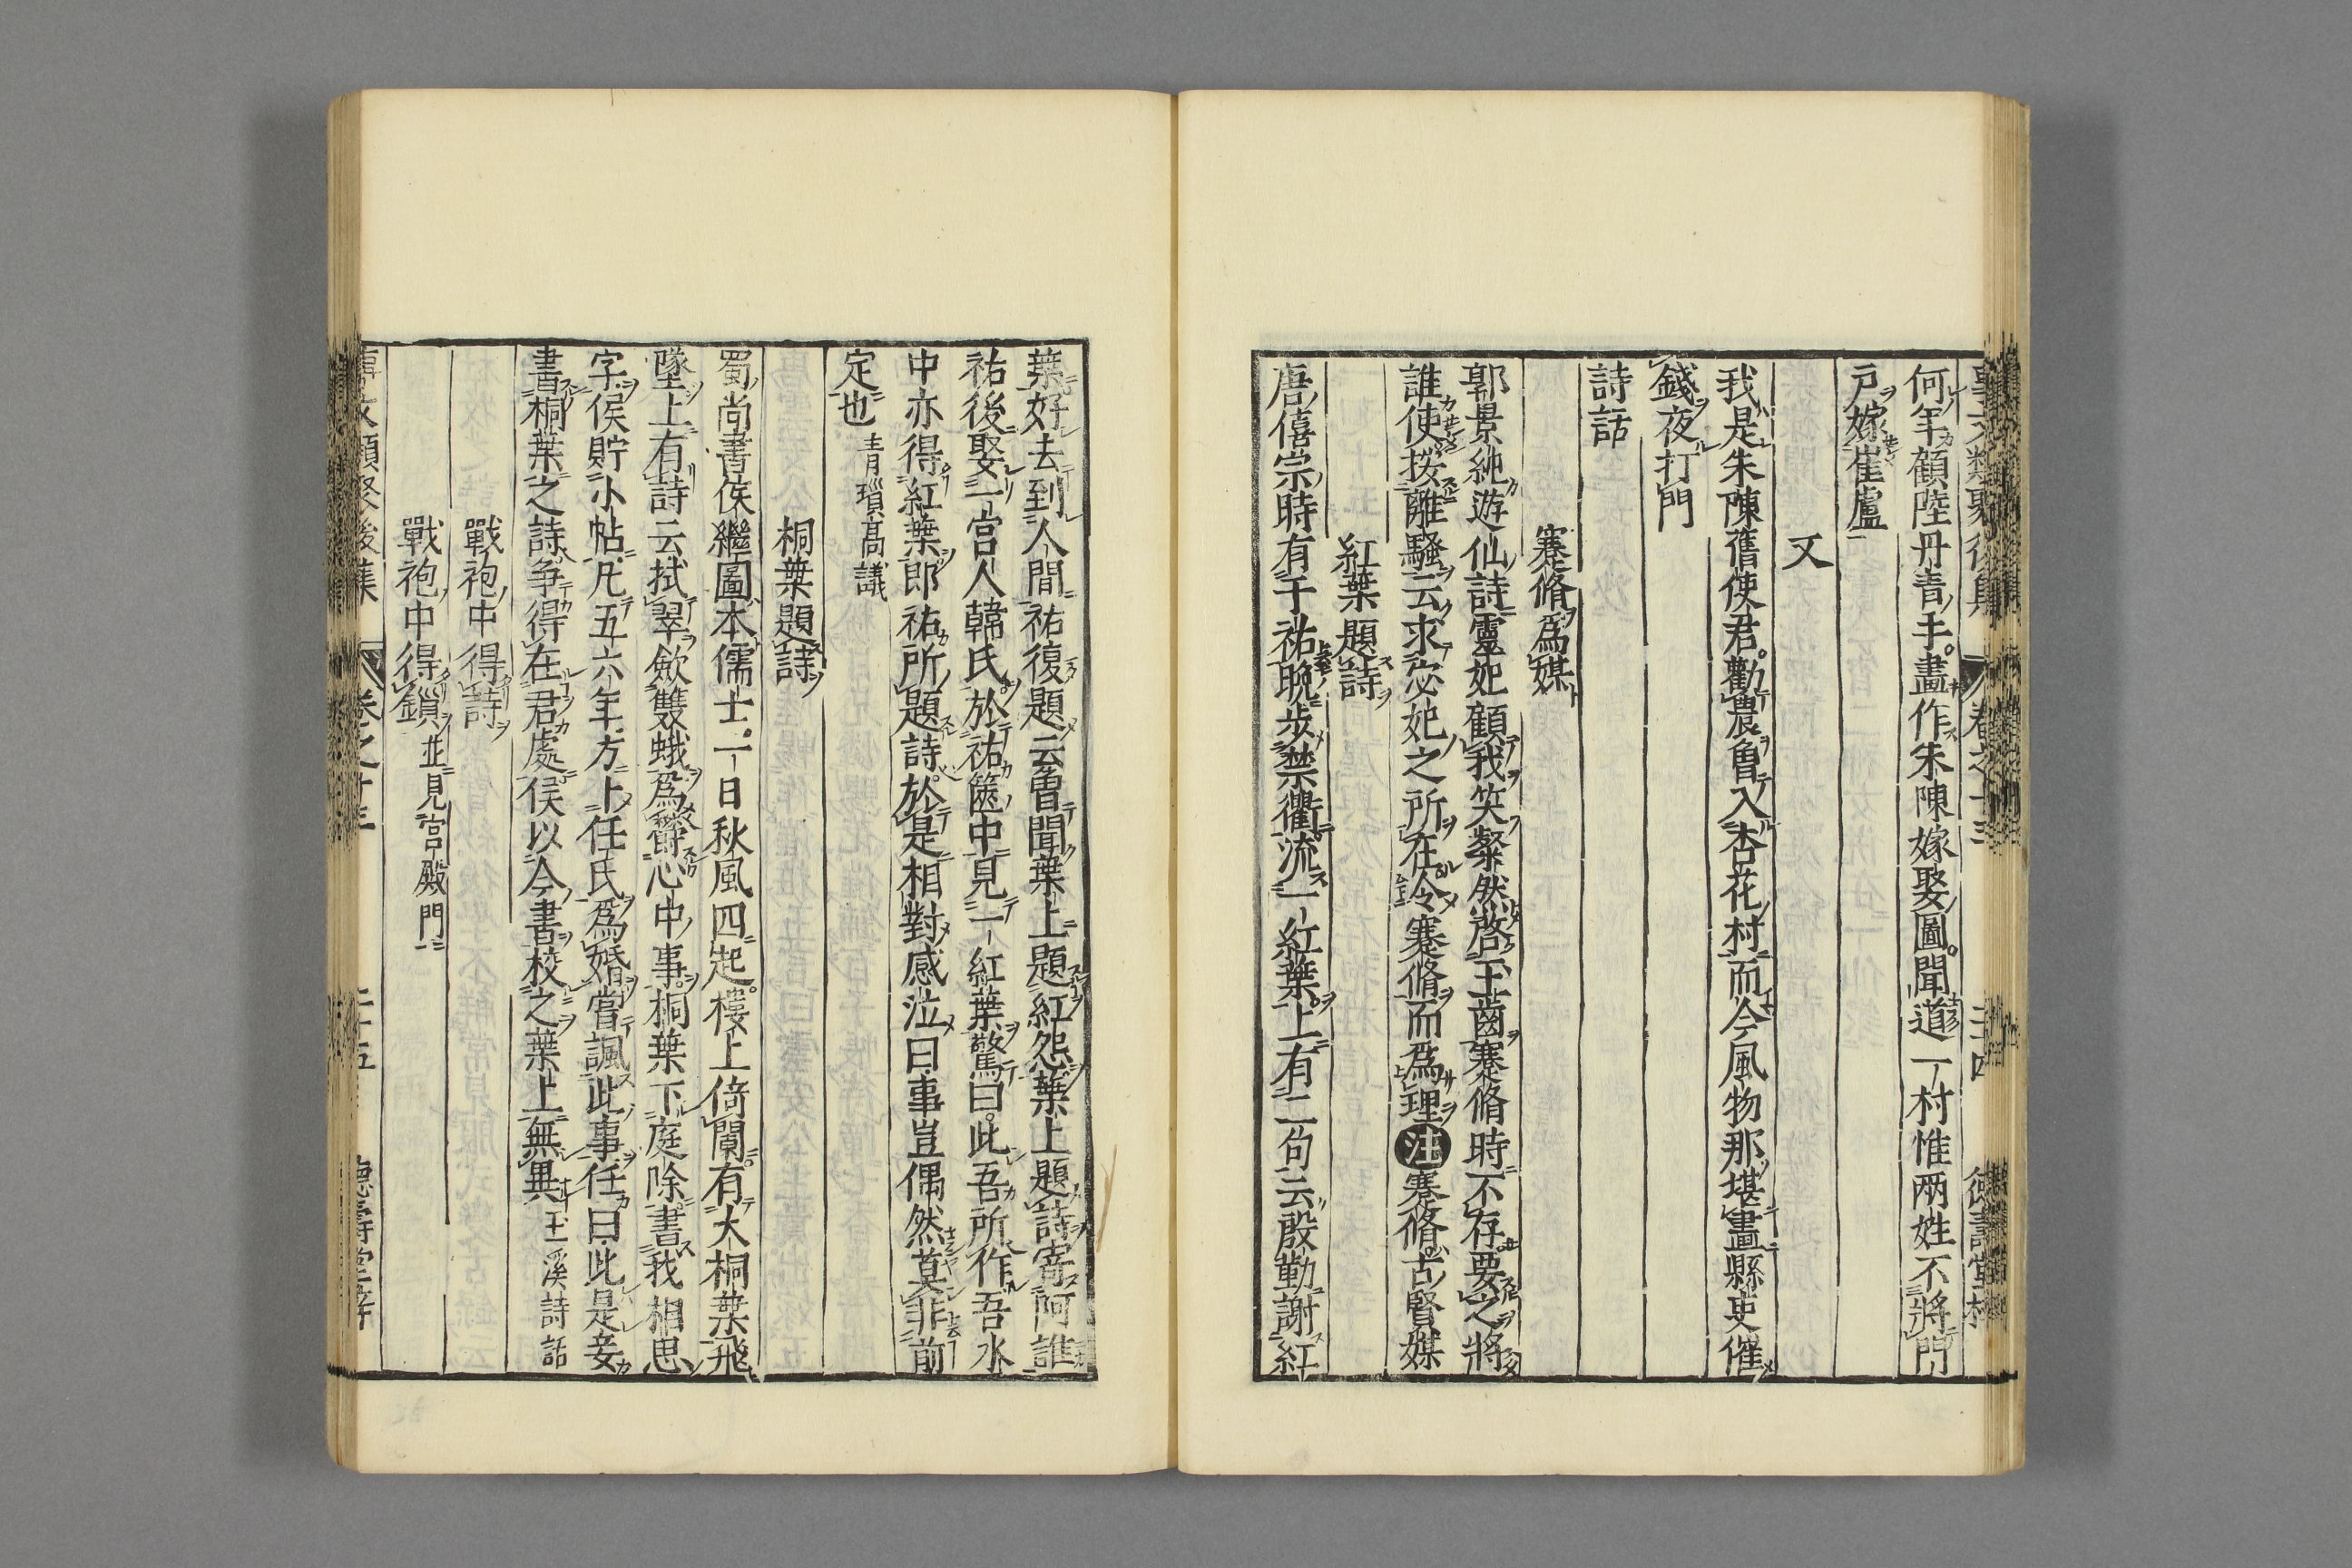 何年顧陸丹青手畫作朱陳嫁娶圖聞道一村惟兩姓不將門
戸嫁崔盧
又
我是朱陳舊使君勸農曾入杏花村而今風物那堪畫縣吏催
錢夜打門
詩話
蹇脩爲媒
郭景純遊仙詩靈妃顧我笑粲然啓玉齒蹇脩時不存要之將
誰使按離騷云求宓妃之所在令蹇脩而爲理注蹇脩古賢媒
紅葉題詩
唐僖宗時有于祐晩步禁衢流一紅葉上有二句云殷勤謝紅
葉好去到人間祐復題云曽聞葉上題紅怨葉上題詩寄阿誰
祐後娶一宮人韓氏於祐篋中見一紅葉驚曰此吾所作吾水
中亦得紅葉即祐所題詩於是相對感泣曰事豈偶然莫非前
定也 青瑣高議
桐葉題詩
蜀尚書侯繼圖本儒士一日秋風四起樓上倚闌有大桐葉飛
墜上有詩云拭翠斂雙蛾爲鬱心中事桐葉下庭除書我相思
字侯貯小帖凡五六年方卜任氏爲婚嘗諷此事任曰此是妾
書桐葉之詩争得在君處侯以今書校之葉上無異 玉溪詩話
戰袍中得詩
戰袍中得鎖 並見宮殿門
事文類聚後集 卷之十三 二十五